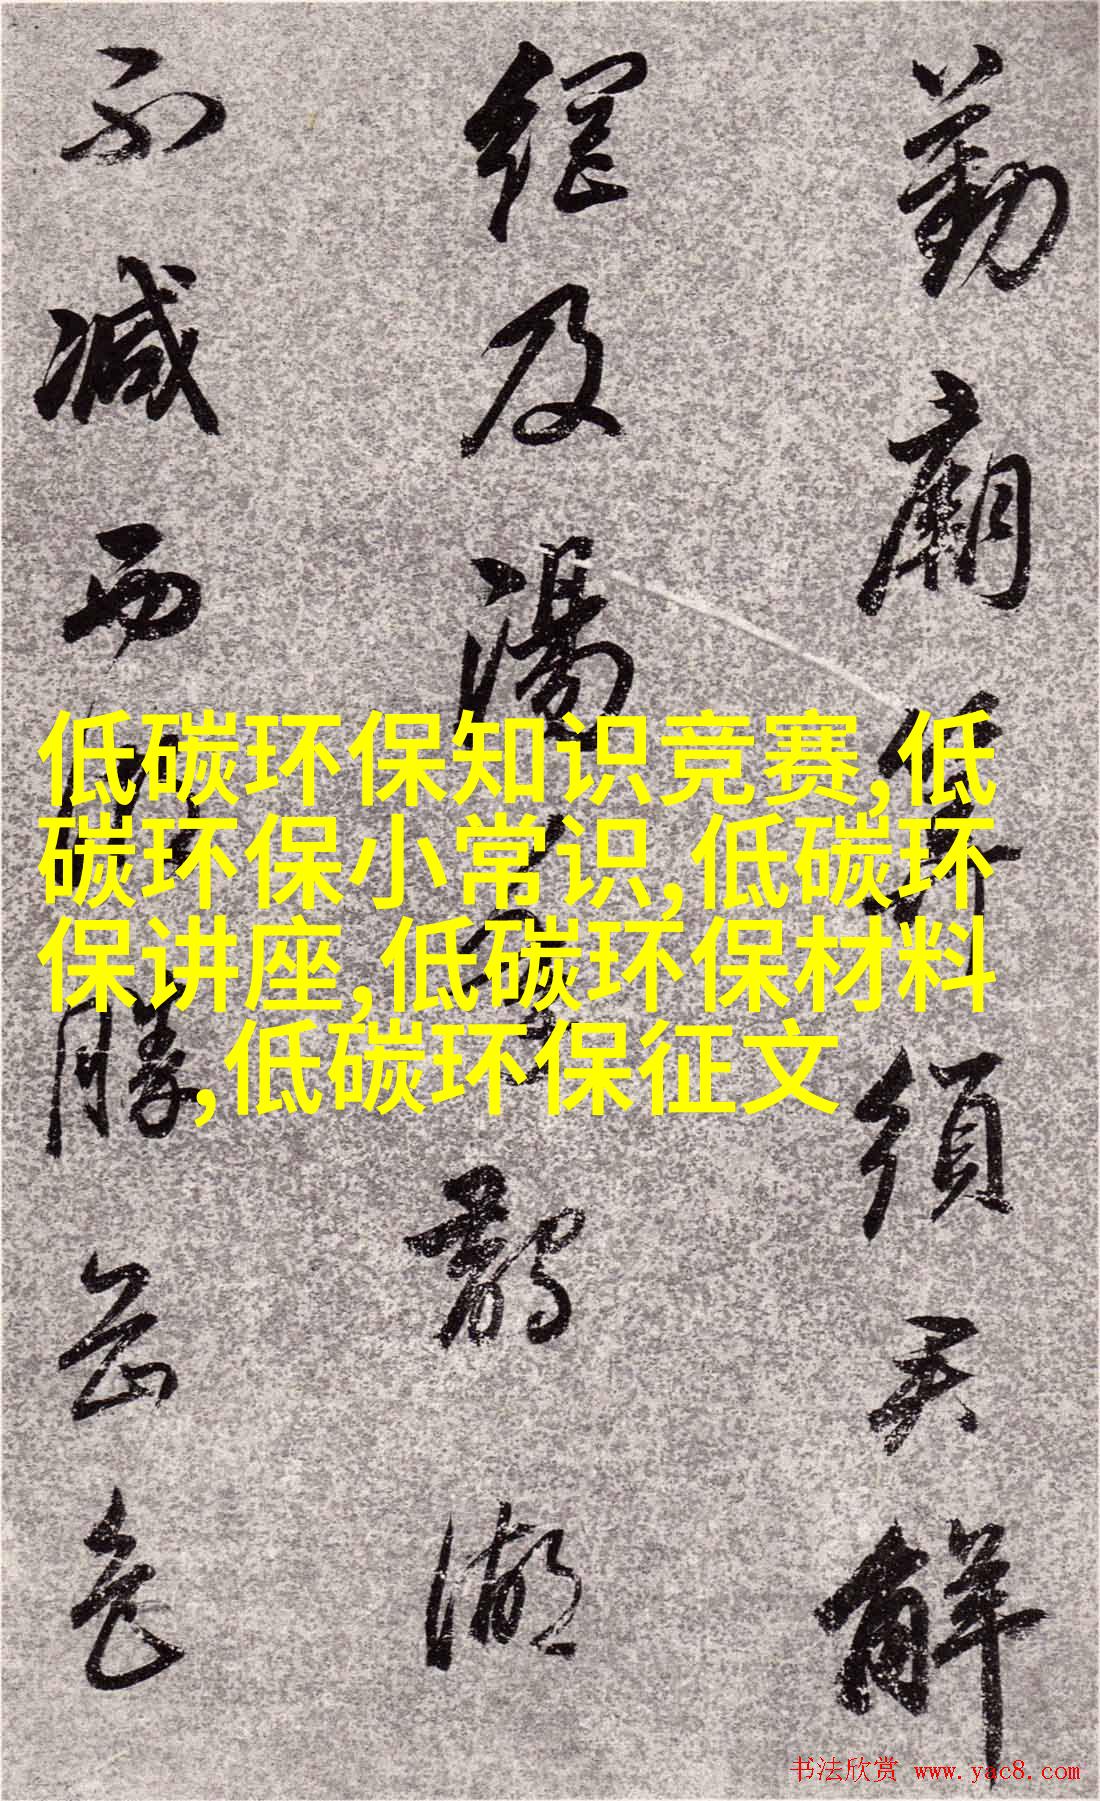 勤廟須解
及湯湖
不減西勝
低碳环保知识竞赛,低
碳环保小常识,低碳环
保讲座,低碳环保材料
,低碳环保征文
书法欣赏 www.yac8.com